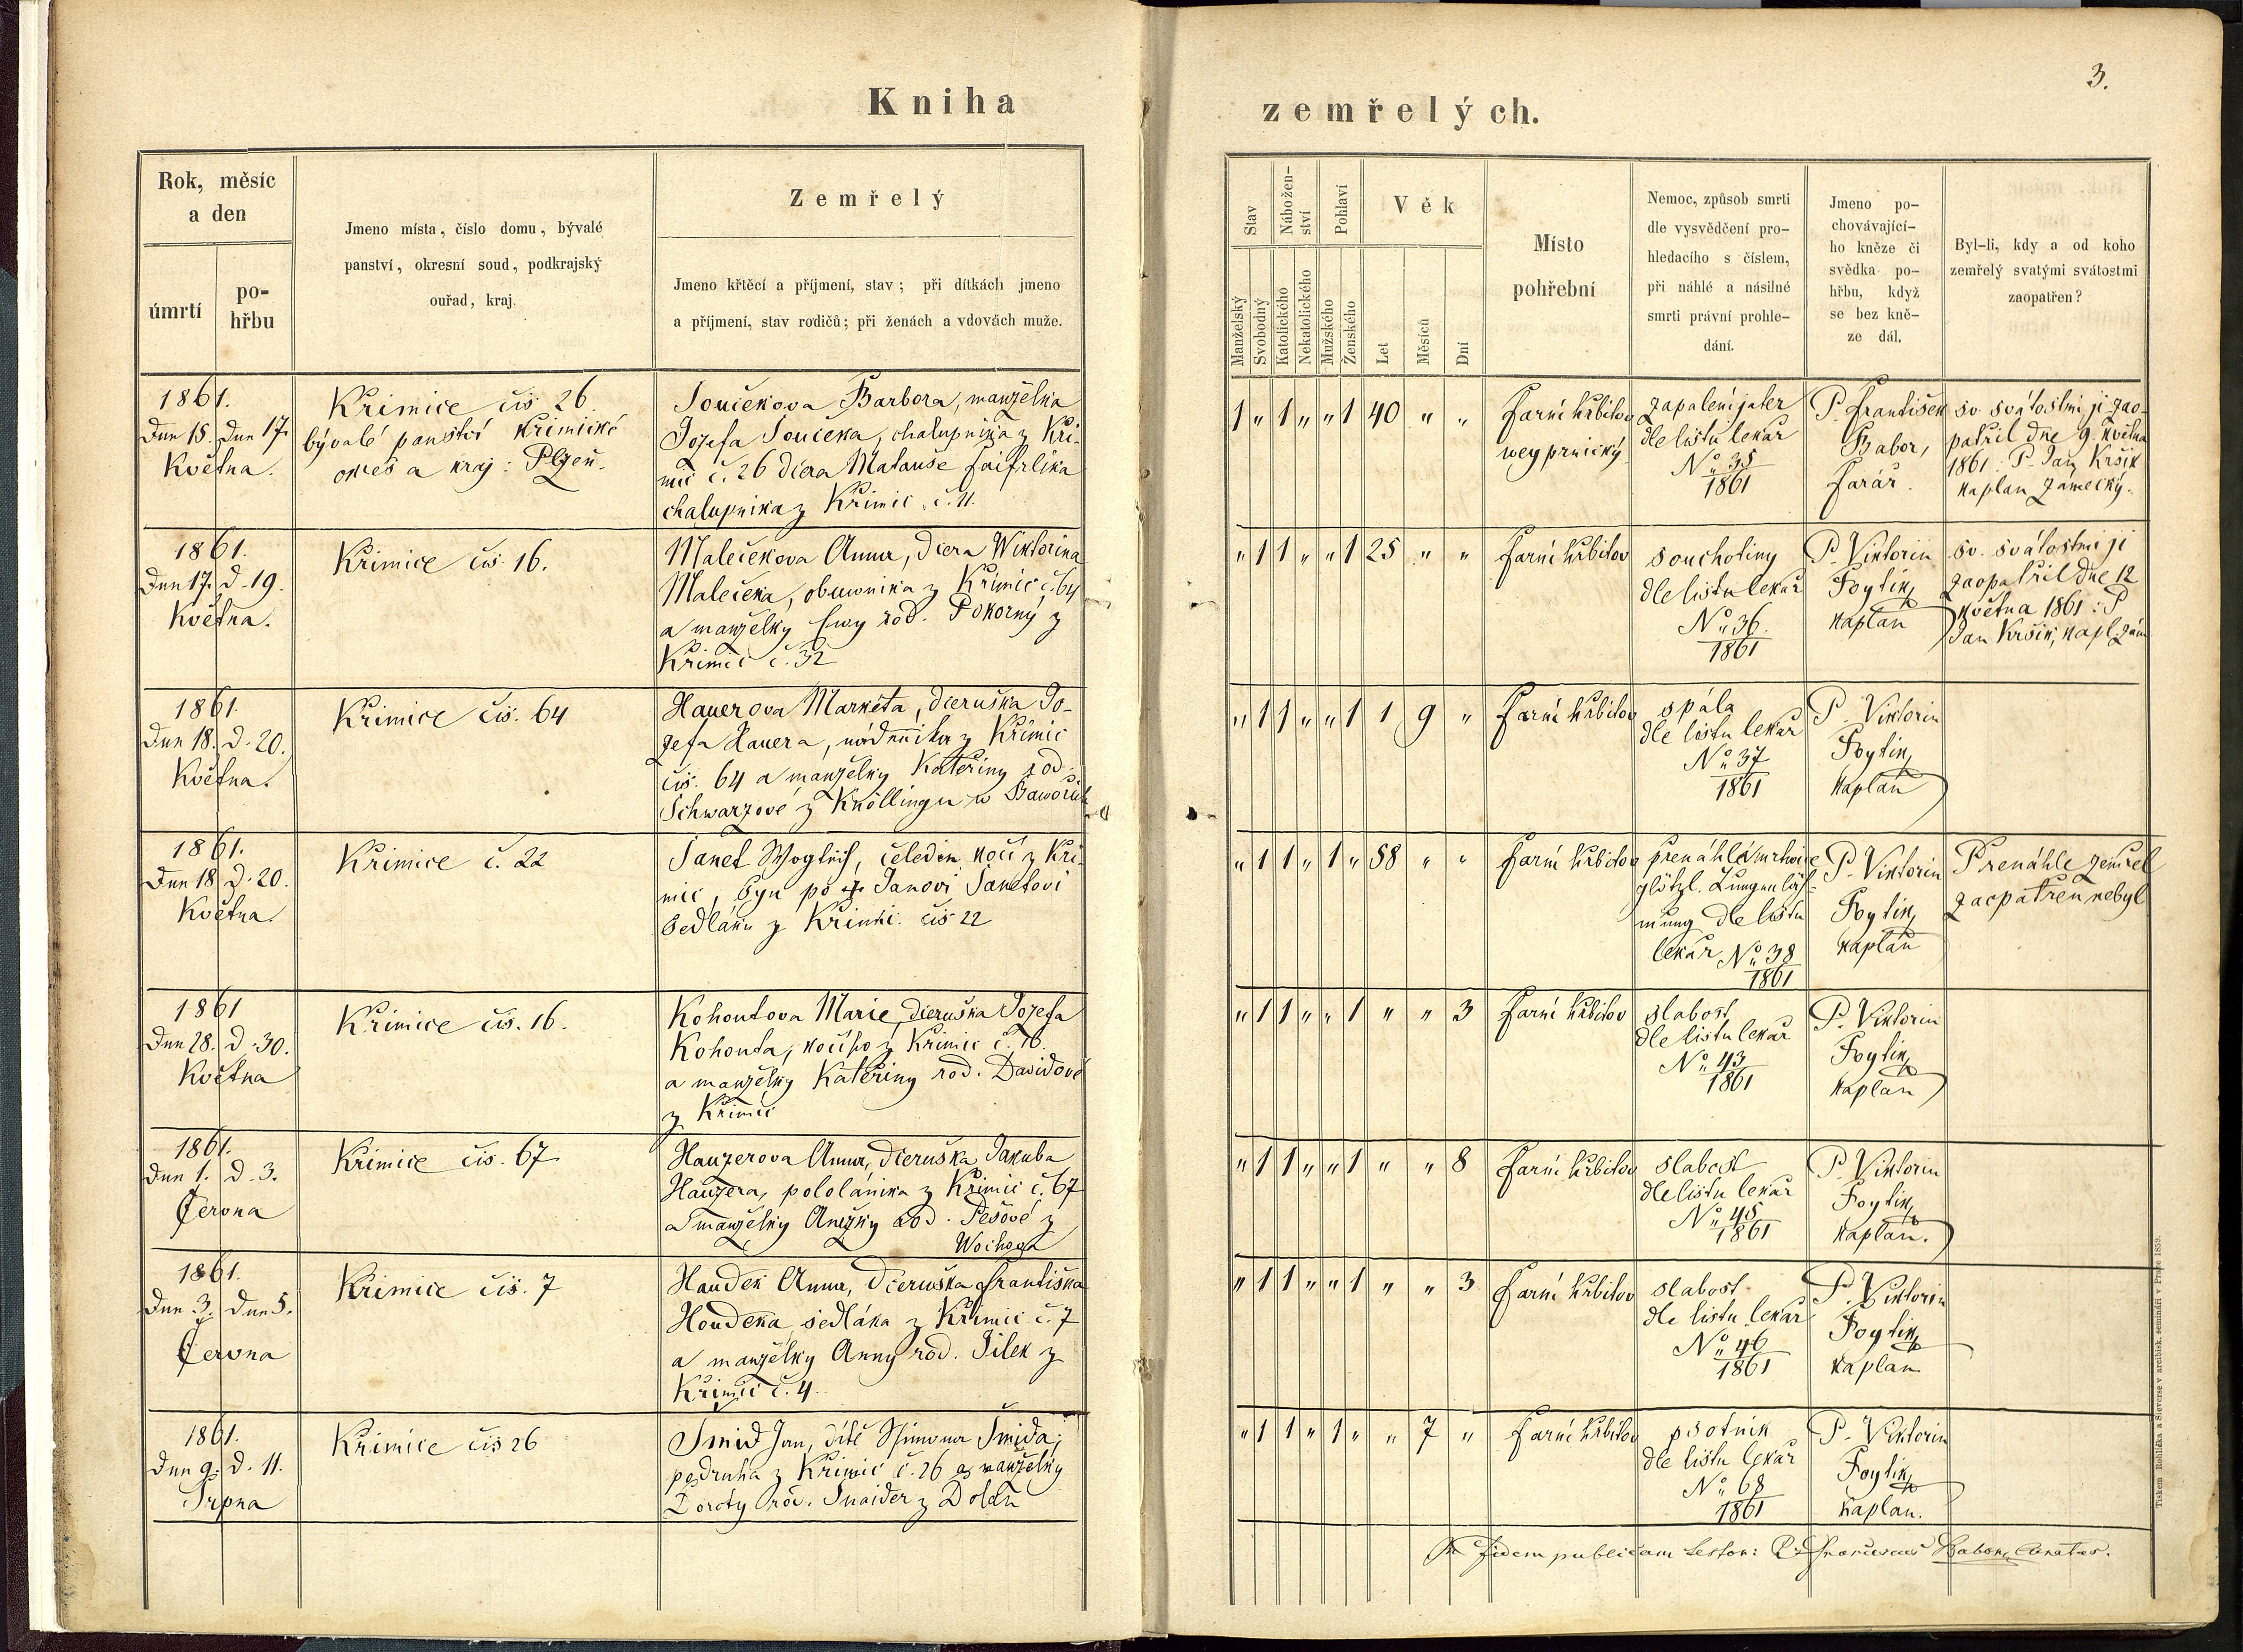 Kniha
zemřelých.
3.
Rok, měsíc
a den
úmrtí
po-
hřbu
Jmeno místa, číslo domu, bývalé
panství, okresní soud, podkrajský
ouřad, kraj.
Zemřelý
Jmeno křtěcí a příjmení, stav; při dítkách jmeno
a příjmení, stav rodičů; při ženách a vdovách muže.
Stav
Nábožen-
ství
Pohlaví
Věk
Manželský
Svobodný
Katolického
Nekatolického
Mužského
Ženského
Let
Měsíců
Dní
Místo
pohřební
Nemoc, způsob smrti
dle vysvědčení pro-
hledacího s číslem,
při náhlé a násilné
smrti právní prohle-
dání.
Jmeno po-
chovávající-
ho kněze či
svědka po-
hřbu, když
se bez kně-
ze dál.
Byl-li, kdy a od koho
zemřelý svatými svátostmi
zaopatřen?
1861.
Dne 15. Dne 17.
Května.
Křimice čís 26
bývalé panství Křimické
okres a kraj: Plzeň.
Součekova Barbora, manželka
Jozefa Součeka, chalupníka z Kři-
mic č. 26 dcera Matauše Faifrlíka
chalupníka z Křimic č. 11.
1 „ 1 „ „ 1 40 „ „
Farní hřbitov
wegprnický
zapalení jater
dle listu lékař
No 35
1861
P. František
Babor,
farář.
sv svátostmi ji zao-
patřil dne 9. května
1861: P. Jan Kršik
kaplan zámecký.
1861.
Dne 17. d. 19.
Května.
Křimice čís. 16.
Malečekova Anna, dcera Wiktorina
Malečeka, obuwníka z Křimic č. 64
a manželky rod. Pokorný z
Křimic č. 32
„ 1 1 „ „ 1 25 „ „
Farní hřbitov
souchotiny
dle listu lékař
No 36.
1861
P. Viktorin
Foytík
kaplan
sv. svátostmi ji
zaopatřil dne 12
května 1861: P
Jan Kršik, kapl. zám
1861.
Dne 18. d. 20.
Května.
Křimice čís. 64
Hauerova Markéta, dceruška Jo-
zefa Hauera, nádenníka z Křimic
čís. 64 a manželky Kateřiny rod.
Schwarzové z Knöllingu w Bawořích
„ 1 1 „ „ 1 1 9 „
Farní hřbitov
spála
dle listu lékař
No 37
1861
P. Viktorin
Foytík
kaplan
1861.
Dne 18 d. 20.
Května.
Křimice č. 22
Janet čeledín kočí z Kři-
mic, syn po † Janovi Janetovi
sedláku z Křimic. čís 22
„ 1 1 „ 1 „ 58 „ „
Farní hřbitov
přenáhlá mrtvice
plötzl. Lungenläh-
mung dle listu
lékař No 38
1861
P. Viktorin
Foytík
kaplan
Přenáhle zemřel
zaopatřen nebyl
1861
Dne 28. d. 30.
Května
Křimice čís. 16.
Kohoutova Marie, dceruška Jozefa
Kohouta, kočího z Křimic č. 16.
a manželky Kateřiny rod. Davidové
z Křimic
„ 1 1 „ „ 1 „ „ 3
Farní hřbitov
slabost
dle listu lékař
No 43
1861
P. Viktorin
Foytík
kaplan
1861.
Dne 1. d. 3.
Června
Křimice čís. 67
Hauzerova Anna, dceruška Jakuba
Hauzera, pololáníka z Křimic č. 67
a manželky Anežky rod. Pešové z
„ 1 1 „ „ 1 „ „ 8
Farní hřbitov
slabost
dle listu lékař
No 45
1861
P. Viktorin
Foytík
kaplan.
1861.
Dne 3. Dne 5.
Června
Křimice čís. 7
Haudek Anna, dceruška Františka
Houdeka sedláka z Křimic č. 7
a manželky Anny rod. Jílek z
Křimic č. 4.
„ 1 1 „ „ 1 „ „ 3
Farní hřbitov
slabost
dle listu lékař
No 46
1861
P. Viktorin
Foytík
kaplan
1861.
Dne 9. d. 11.
Srpna
Křimice čís 26
Šmid Jan, dítě Šimona Šmida,
podruha z Křimic č. 26 a manželky
Doroty roď. Šnaider z Dolan
„ 1 1 „ 1 „ „ 7 „
Farní hřbitov
psotník
dle listu lékař
No 68
1861
P. Viktorin
Foytík
kaplan.
In fidem publicam testor: P. Franciscus Babor, Curatus.
Tiskem Rohlička a Sieverse v arcibisk. semináři v Praze 1859.